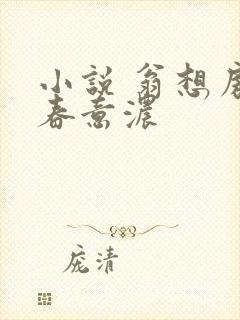 小說 翁想
春意濃
庞清